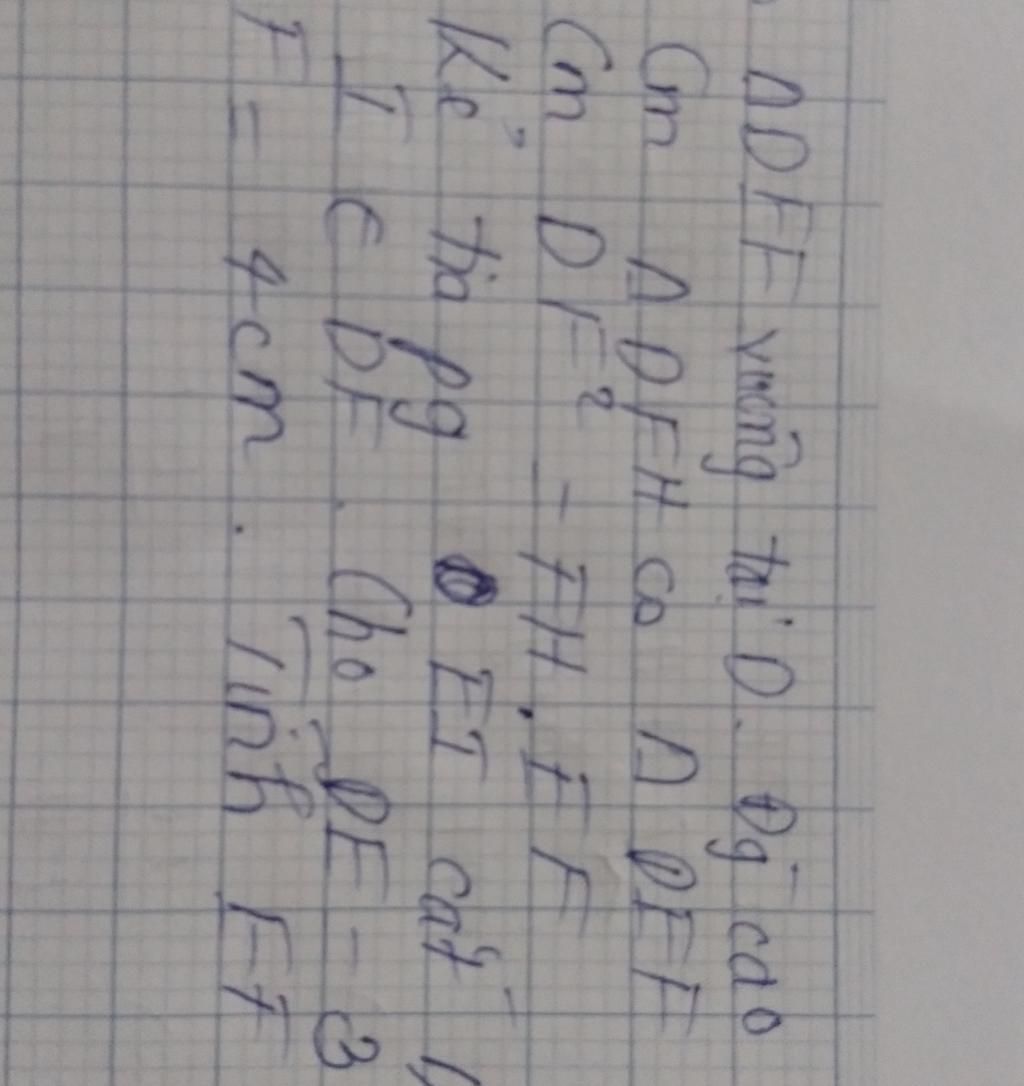 ΔDEF vuông tại D. Đg cao
Cm ΔDFH ᔕ ΔDEF
Cm DF² = FH.EF
Kẻ tia pg EI cắt
I ∈ DF. Cho DE = 3
F = 4cm. Tính EF